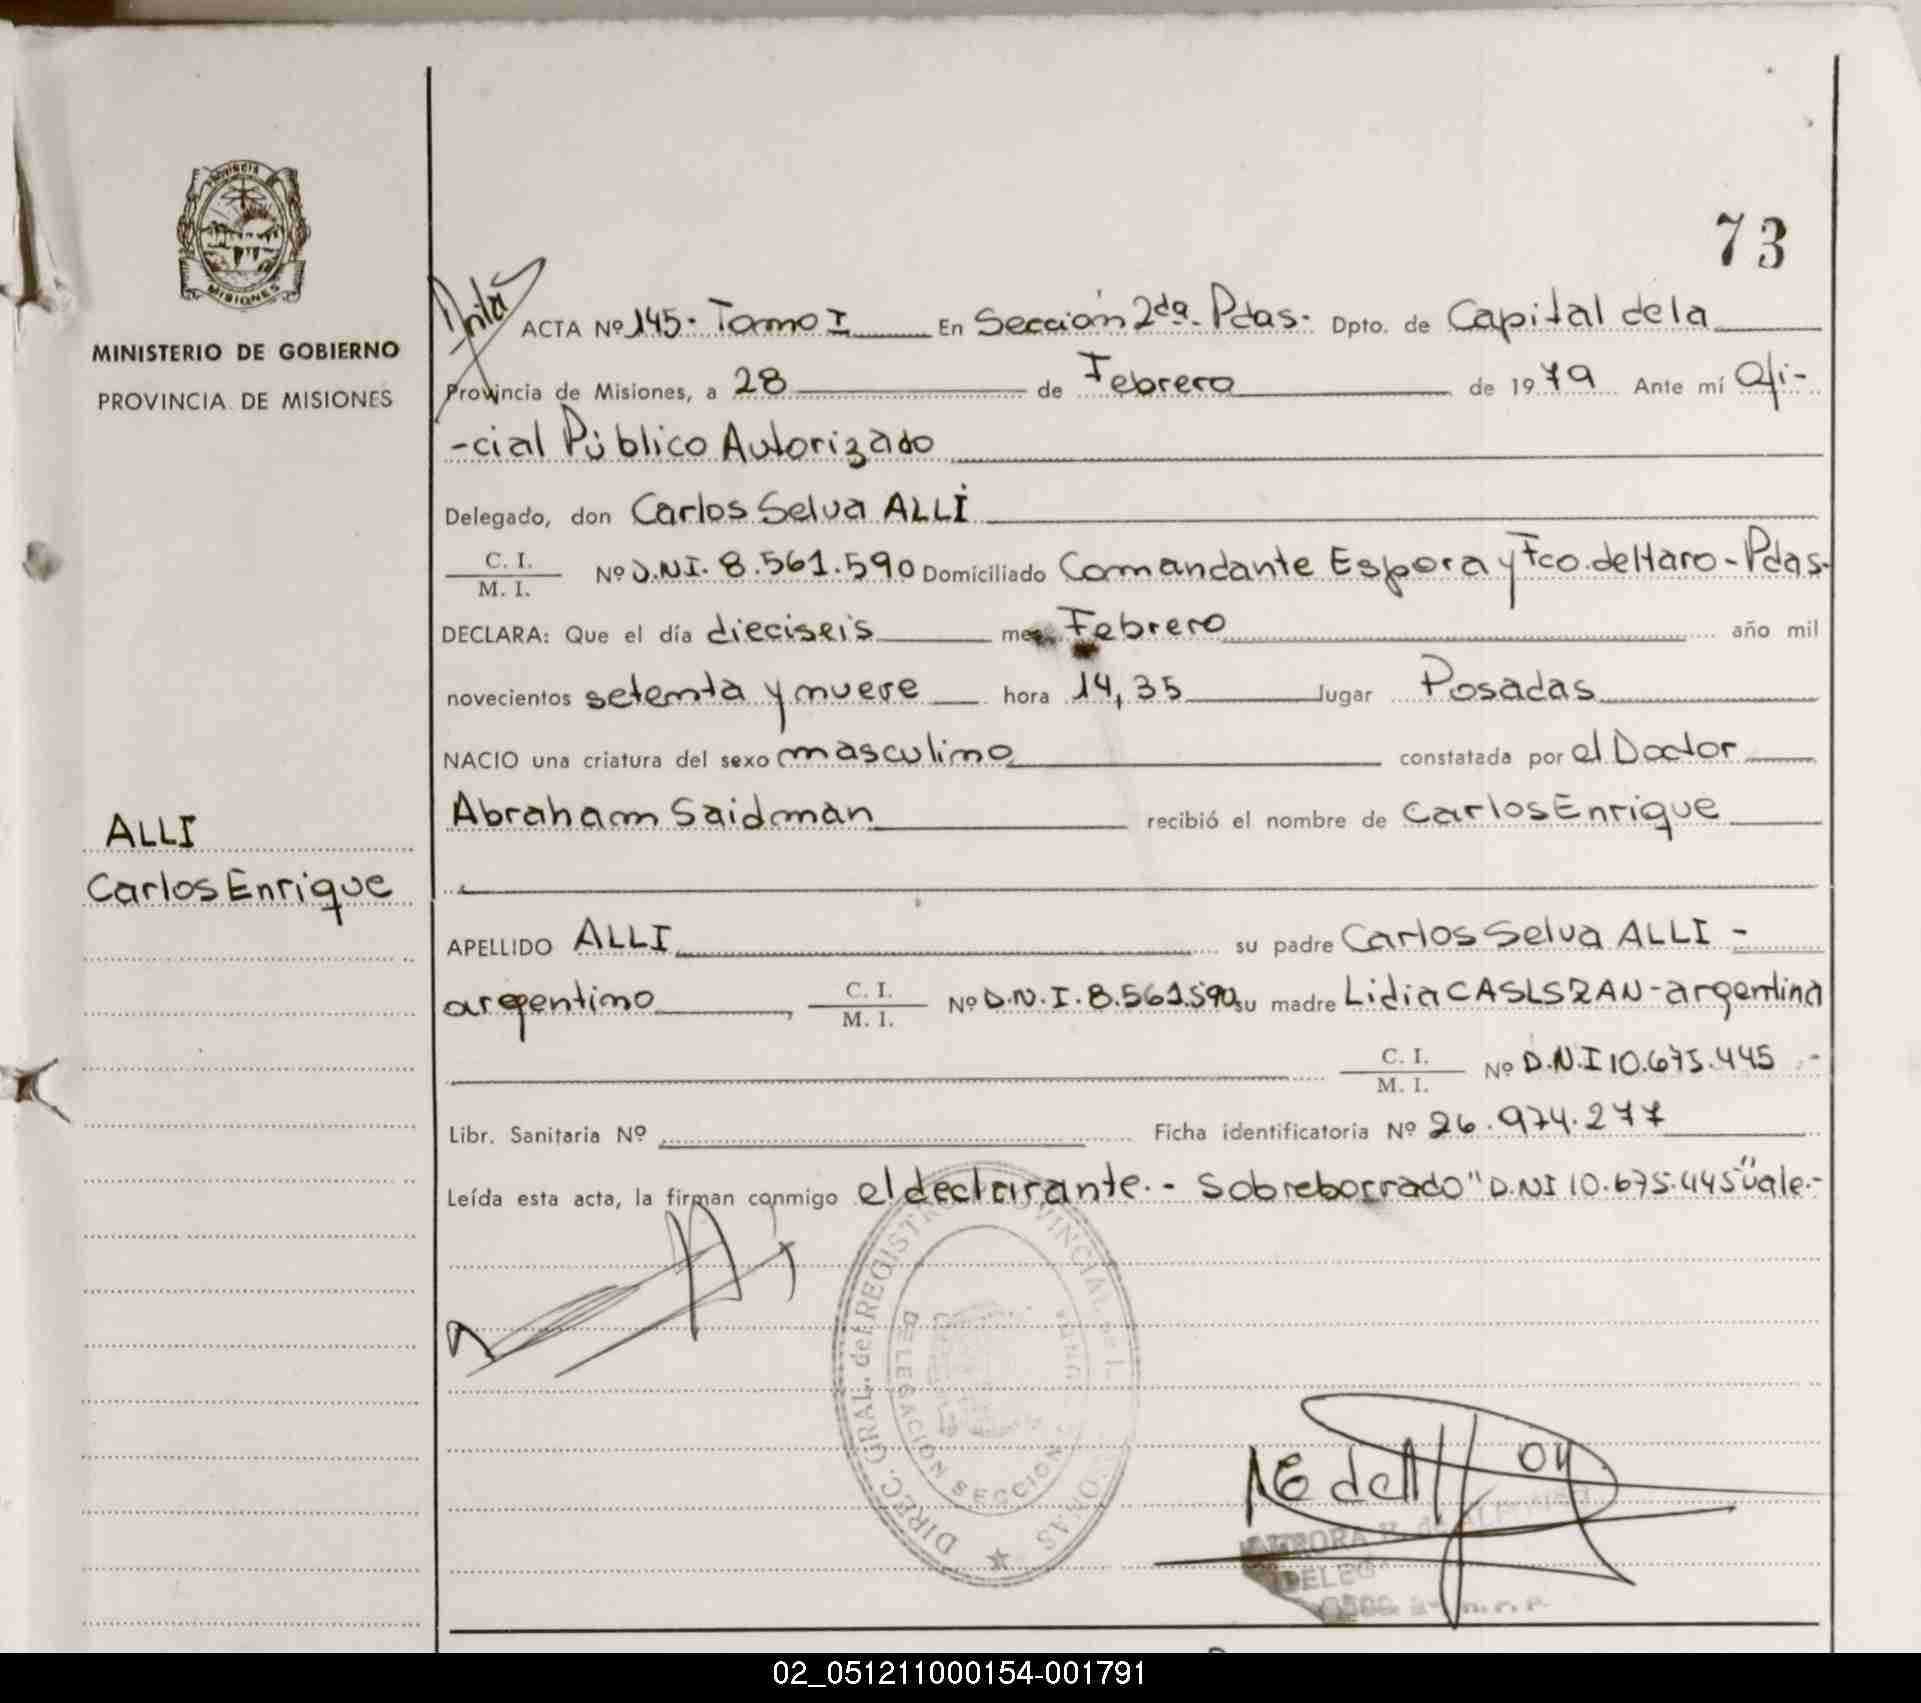 73
PROVINCIA DE
MISIONES
MINISTERIO DE GOBIERNO
PROVINCIA DE MISIONES
ALLI
Carlos Enrique
ACTA Nº 145- Tomo I En Sección 2da. Pdas. Dpto. de Capital de la
Provincia de Misiones, a 28 de Febrero de 1979 Ante mí Ofi-
-cial Público Autorizado
Delegado, don Carlos Selva ALLI
C. I.
M. I. Nº D.N.I. 8.561.590 Domiciliado Comandante Espora y Fco. de Haro - Pdas.
DECLARA: Que el día dieciseis mes Febrero año mil
novecientos setenta y nueve hora 14,35 lugar Posadas
NACIO una criatura del sexo masculino constatada por el Doctor
Abraham Saidman recibió el nombre de Carlos Enrique
APELLIDO ALLI su padre Carlos Selva ALLI -
argentino C. I.
M. I. Nº D.N.I. 8.561.590 su madre Lidia CASLSZAN - argentina
C. I.
M. I. Nº D.N.I 10.675.445 -
Libr. Sanitaria Nº Ficha identificatoria Nº 26.974.277
Leída esta acta, la firman conmigo el declarante.- Sobreborrado "D.NI 10.675.445" vale.-
DIREC. GRAL. del REGISTRO PROVINCIAL de L
DELEGACION SECCION
02_051211000154-001791